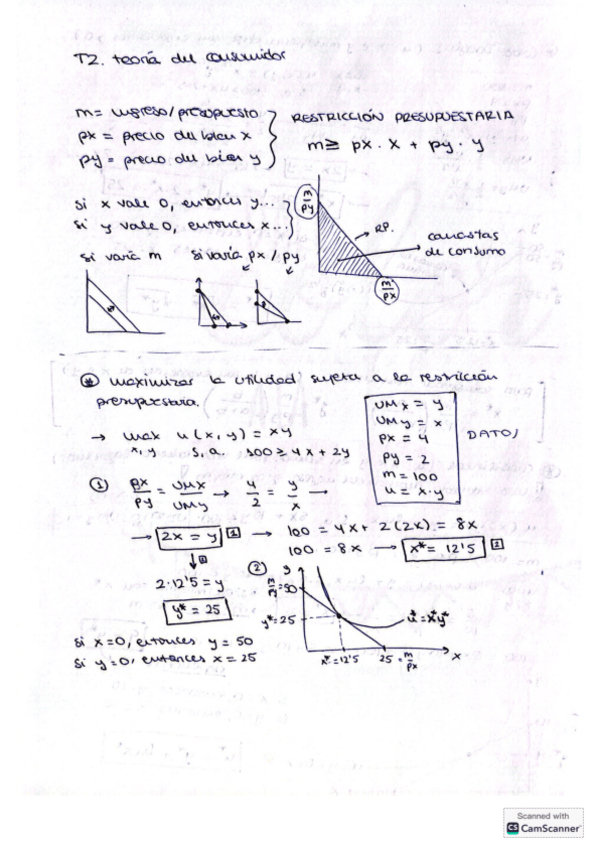 T2. teoría del consumidor
m = ingreso/presupuesto
px = precio del bien x
py = precio del bien y
RESTRICCIÓN PRESUPUESTARIA
m ≥ px · x + py · y
si x vale 0, entonces y...
si y vale 0, entonces x...
m/py
RP.
canastas de consumo
m/px
si varía m
si varía px / py
* maximizar la utilidad sujeta a la restricción
presupuestaria.
→ max u(x,y) = xy
x,y s.a. 100 ≥ 4x + 2y
UMx = y
UMy = x
px = 4
py = 2
m = 100
u = x·y
DATOS
① px/py = UMx/UMy → 4/2 = y/x →
→ 2x = y 1 → 100 = 4x + 2(2x) = 8x
100 = 8x → x* = 12'5 2
2·12'5 = y
y* = 25
si x=0, entonces y = 50
si y=0, entonces x = 25
② y
m/py = 50
y* = 25
u* = x*y*
x* = 12'5
25 = m/px
x
Scanned with
CS CamScanner